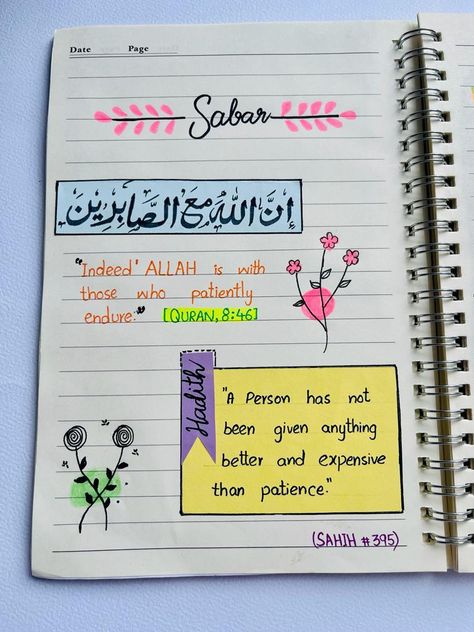 Date Page
Sabar
إنَّ اللهَ مَعَ الصَّابِرِينَ
"Indeed' ALLAH is with
those who patiently
endure."
[QURAN, 8:46]
Hadith
"A Person has not
been given anything
better and expensive
than patience."
(SAHIH #395)